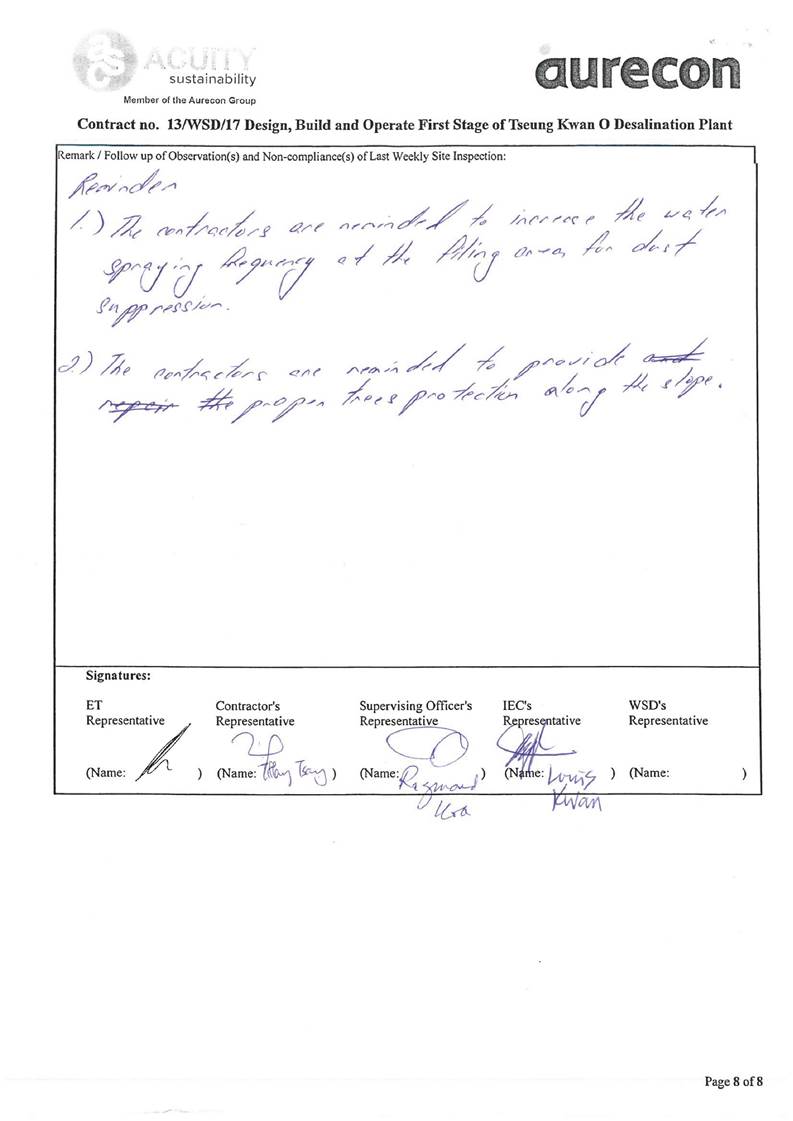 asc ACUITY
sustainability
Member of the Aurecon Group
aurecon
Contract no. 13/WSD/17 Design, Build and Operate First Stage of Tseung Kwan O Desalination Plant
Remark / Follow up of Observation(s) and Non-compliance(s) of Last Weekly Site Inspection:
Reminder
1.) The contractors are reminded to increase the water
spraying frequency at the filing area for dust
suppression.
2.) The contractors are reminded to provide and
repair the proper trees protection along the slope.
Signatures:
ET Representative
Contractor's Representative
Supervising Officer's Representative
IEC's Representative
WSD's Representative
(Name: )
(Name: Tsang )
(Name: Raymond )
(Name: Louis Kwan )
(Name: )
Page 8 of 8